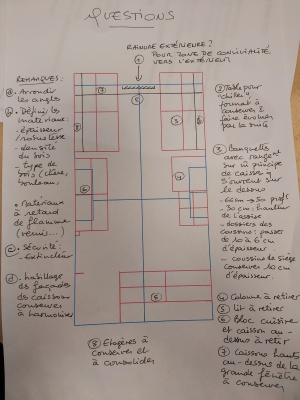 QUESTIONS
RAINURE EXTÉRIEURE?
①
POUR ZONE DE CONVIVIALITÉ
VERS L'EXTÉRIEUR
REMARQUES:
a. Arrondir
les angles
b. Définir les
matériaux:
- épaisseur
/ robustesse
- densité
du bois
- type de
bois (chêne,
bouleau,
• Matériaux
à retard
de flamme
(vernis...)
c. Sécurité:
- extincteur
d. habillage
des façades
des caissons
conservés
à harmoniser
② Table pour
format à
conserver &
faire évoluer
par la suite
③ Banquettes
avec rangement
sur un principe
de caissons
s'ouvrant sur
le dessus
- 66cm → 50 prof
- 30 cm: hauteur
de l'assise
- dossiers des
coussins: passer
de 10 à 6 cm
d'épaisseur.
- coussins de siège
conserver 10 cm
d'épaisseur.
④ Colonne à retirer
⑤ Lit à retirer
⑥ Bloc cuisine
et caisson au-
dessus à retir
⑦ Caissons hauts
au-dessus de la
grande fenêtre
à conserver
⑧ Étagères à
conserver et
à consolider
⑦
⑤
⑧
③
④
⑥